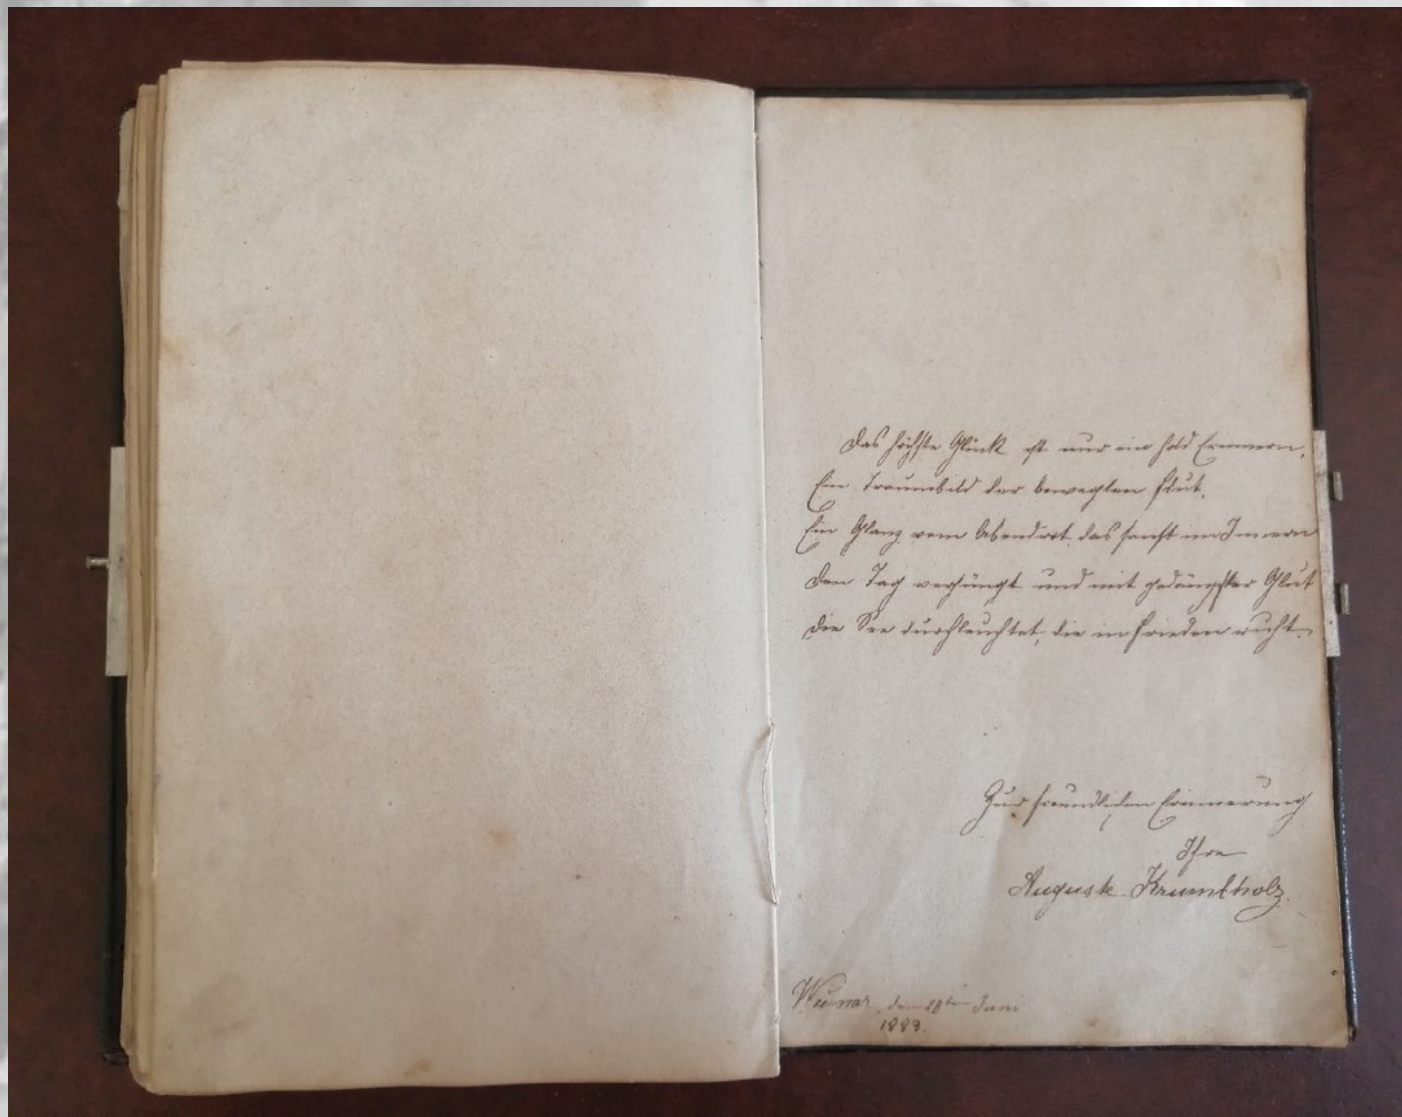 Das höchste Glück ist nur ein hold Erinnern,
Ein Traumbild der bewegten Flut,
Ein Glanz vom Abendrot, das sanft im Innern
Den Tag verjüngt und mit gedämpfter Glut
die See durchleuchtet, die in Frieden ruht.
Zur freundlichen Erinnerung
Ihre
Auguste Krumbholz.
den 28ten Juni